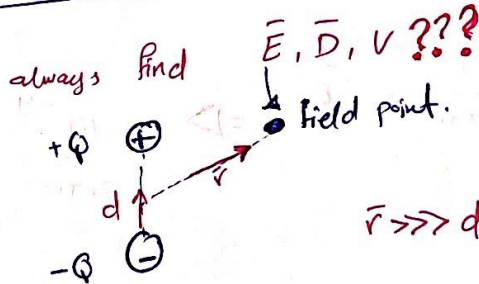 always find E̅, D̅, V ???
+Q + field point.
d r̅
r̅ >>> d
-Q −